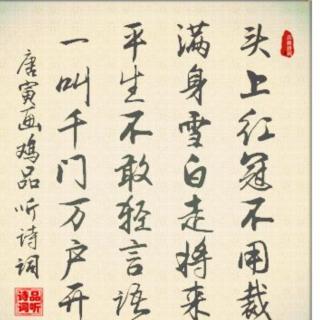 头上红冠不用裁
满身雪白走将来
平生不敢轻言语
一叫千门万户开
唐寅画鸡品听诗词
品听
诗词